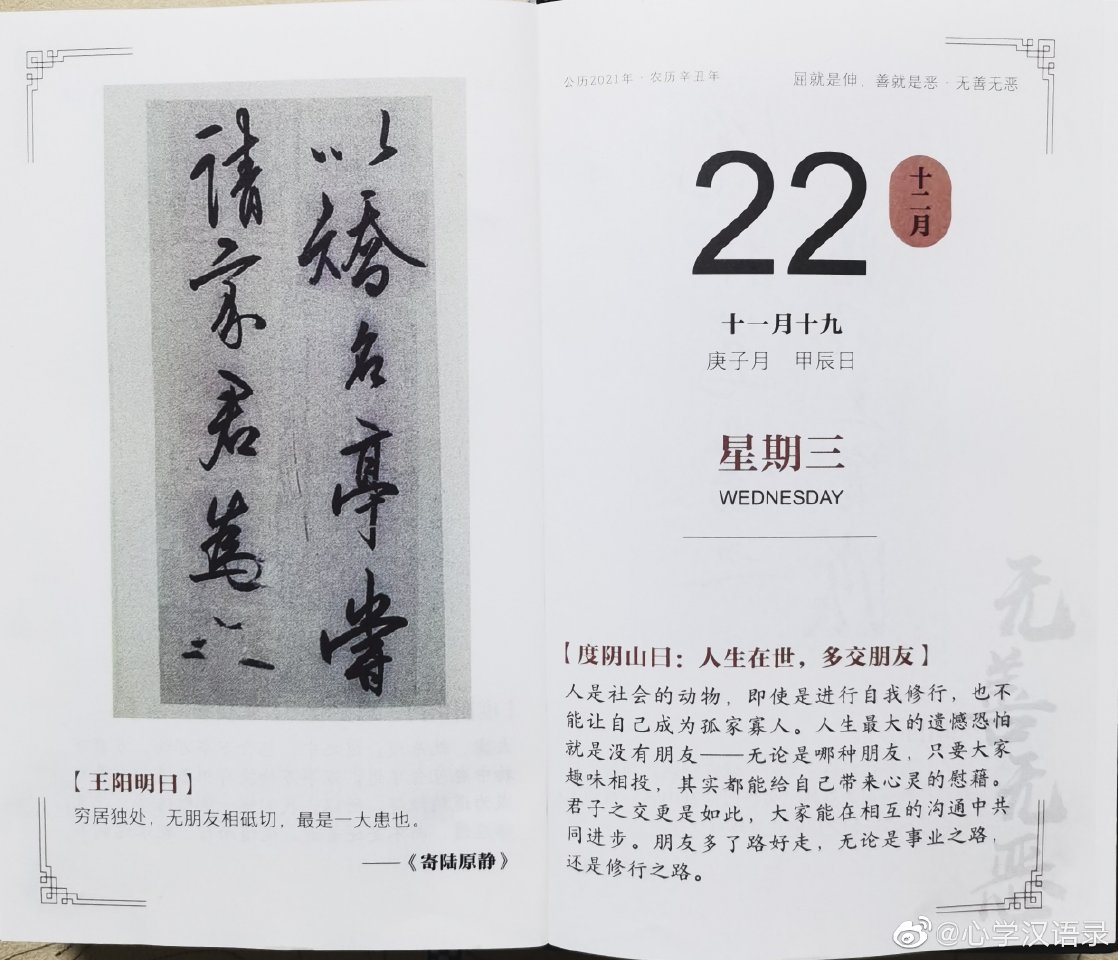 以矯名亭嘗
請家君為
【王阳明曰】
穷居独处，无朋友相砥切，最是一大患也。
——《寄陆原静》
公历2021年·农历辛丑年
屈就是伸，善就是恶·无善无恶
22
十二月
十一月十九
庚子月 甲辰日
星期三
WEDNESDAY
【度阴山曰：人生在世，多交朋友】
人是社会的动物，即使是进行自我修行，也不
能让自己成为孤家寡人。人生最大的遗憾恐怕
就是没有朋友——无论是哪种朋友，只要大家
趣味相投，其实都能给自己带来心灵的慰藉。
君子之交更是如此，大家能在相互的沟通中共
同进步。朋友多了路好走，无论是事业之路，
还是修行之路。
无善无恶
@心学汉语录